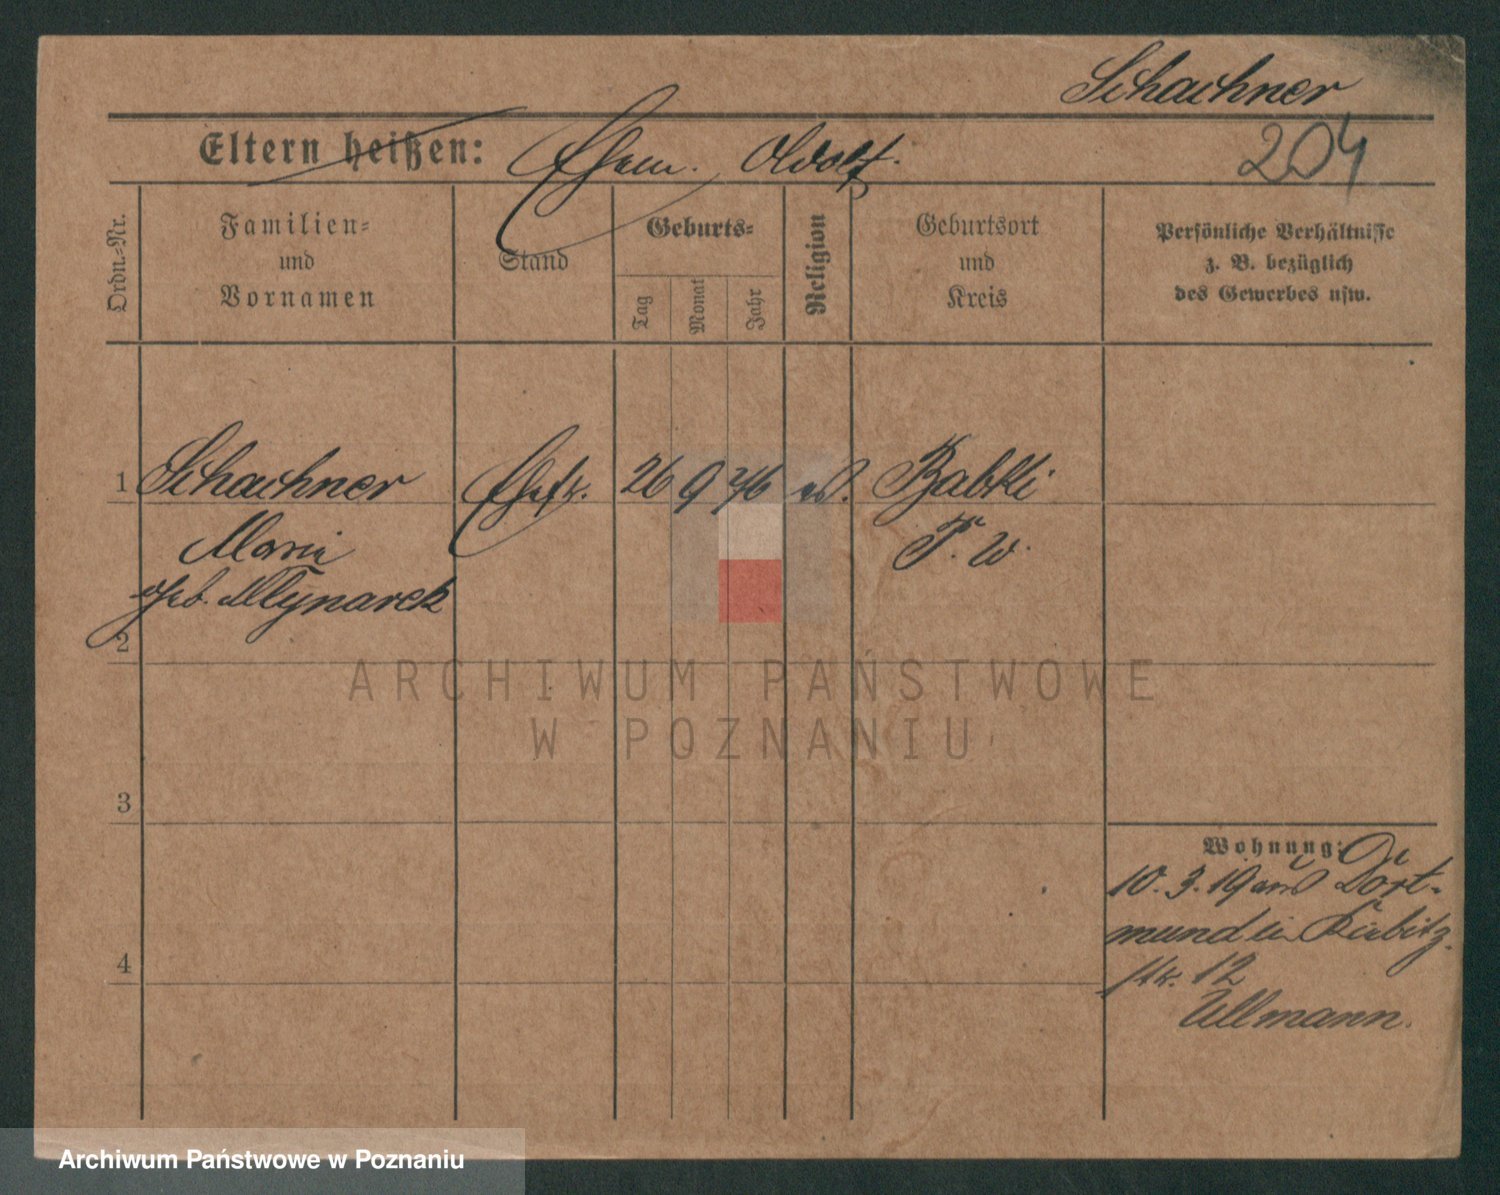 Schachner
Eltern heißen: Ehem. Adolf.
204
Ordn.-Nr.
Familien-
und
Vornamen
Stand
Geburts-
Tag
Monat
Jahr
Religion
Geburtsort
und
Kreis
Persönliche Verhältnisse
z. B. bezüglich
des Gewerbes usw.
1 Schachner Ehefr. 26 9 46 Babki
P. W.
geb. Mlynarek
2
3
4
Wohnung:
10. 3. 19 aus Dort-
mund
12
Ullmann.
ARCHIWUM PAŃSTWOWE
W POZNANIU
Archiwum Państwowe w Poznaniu